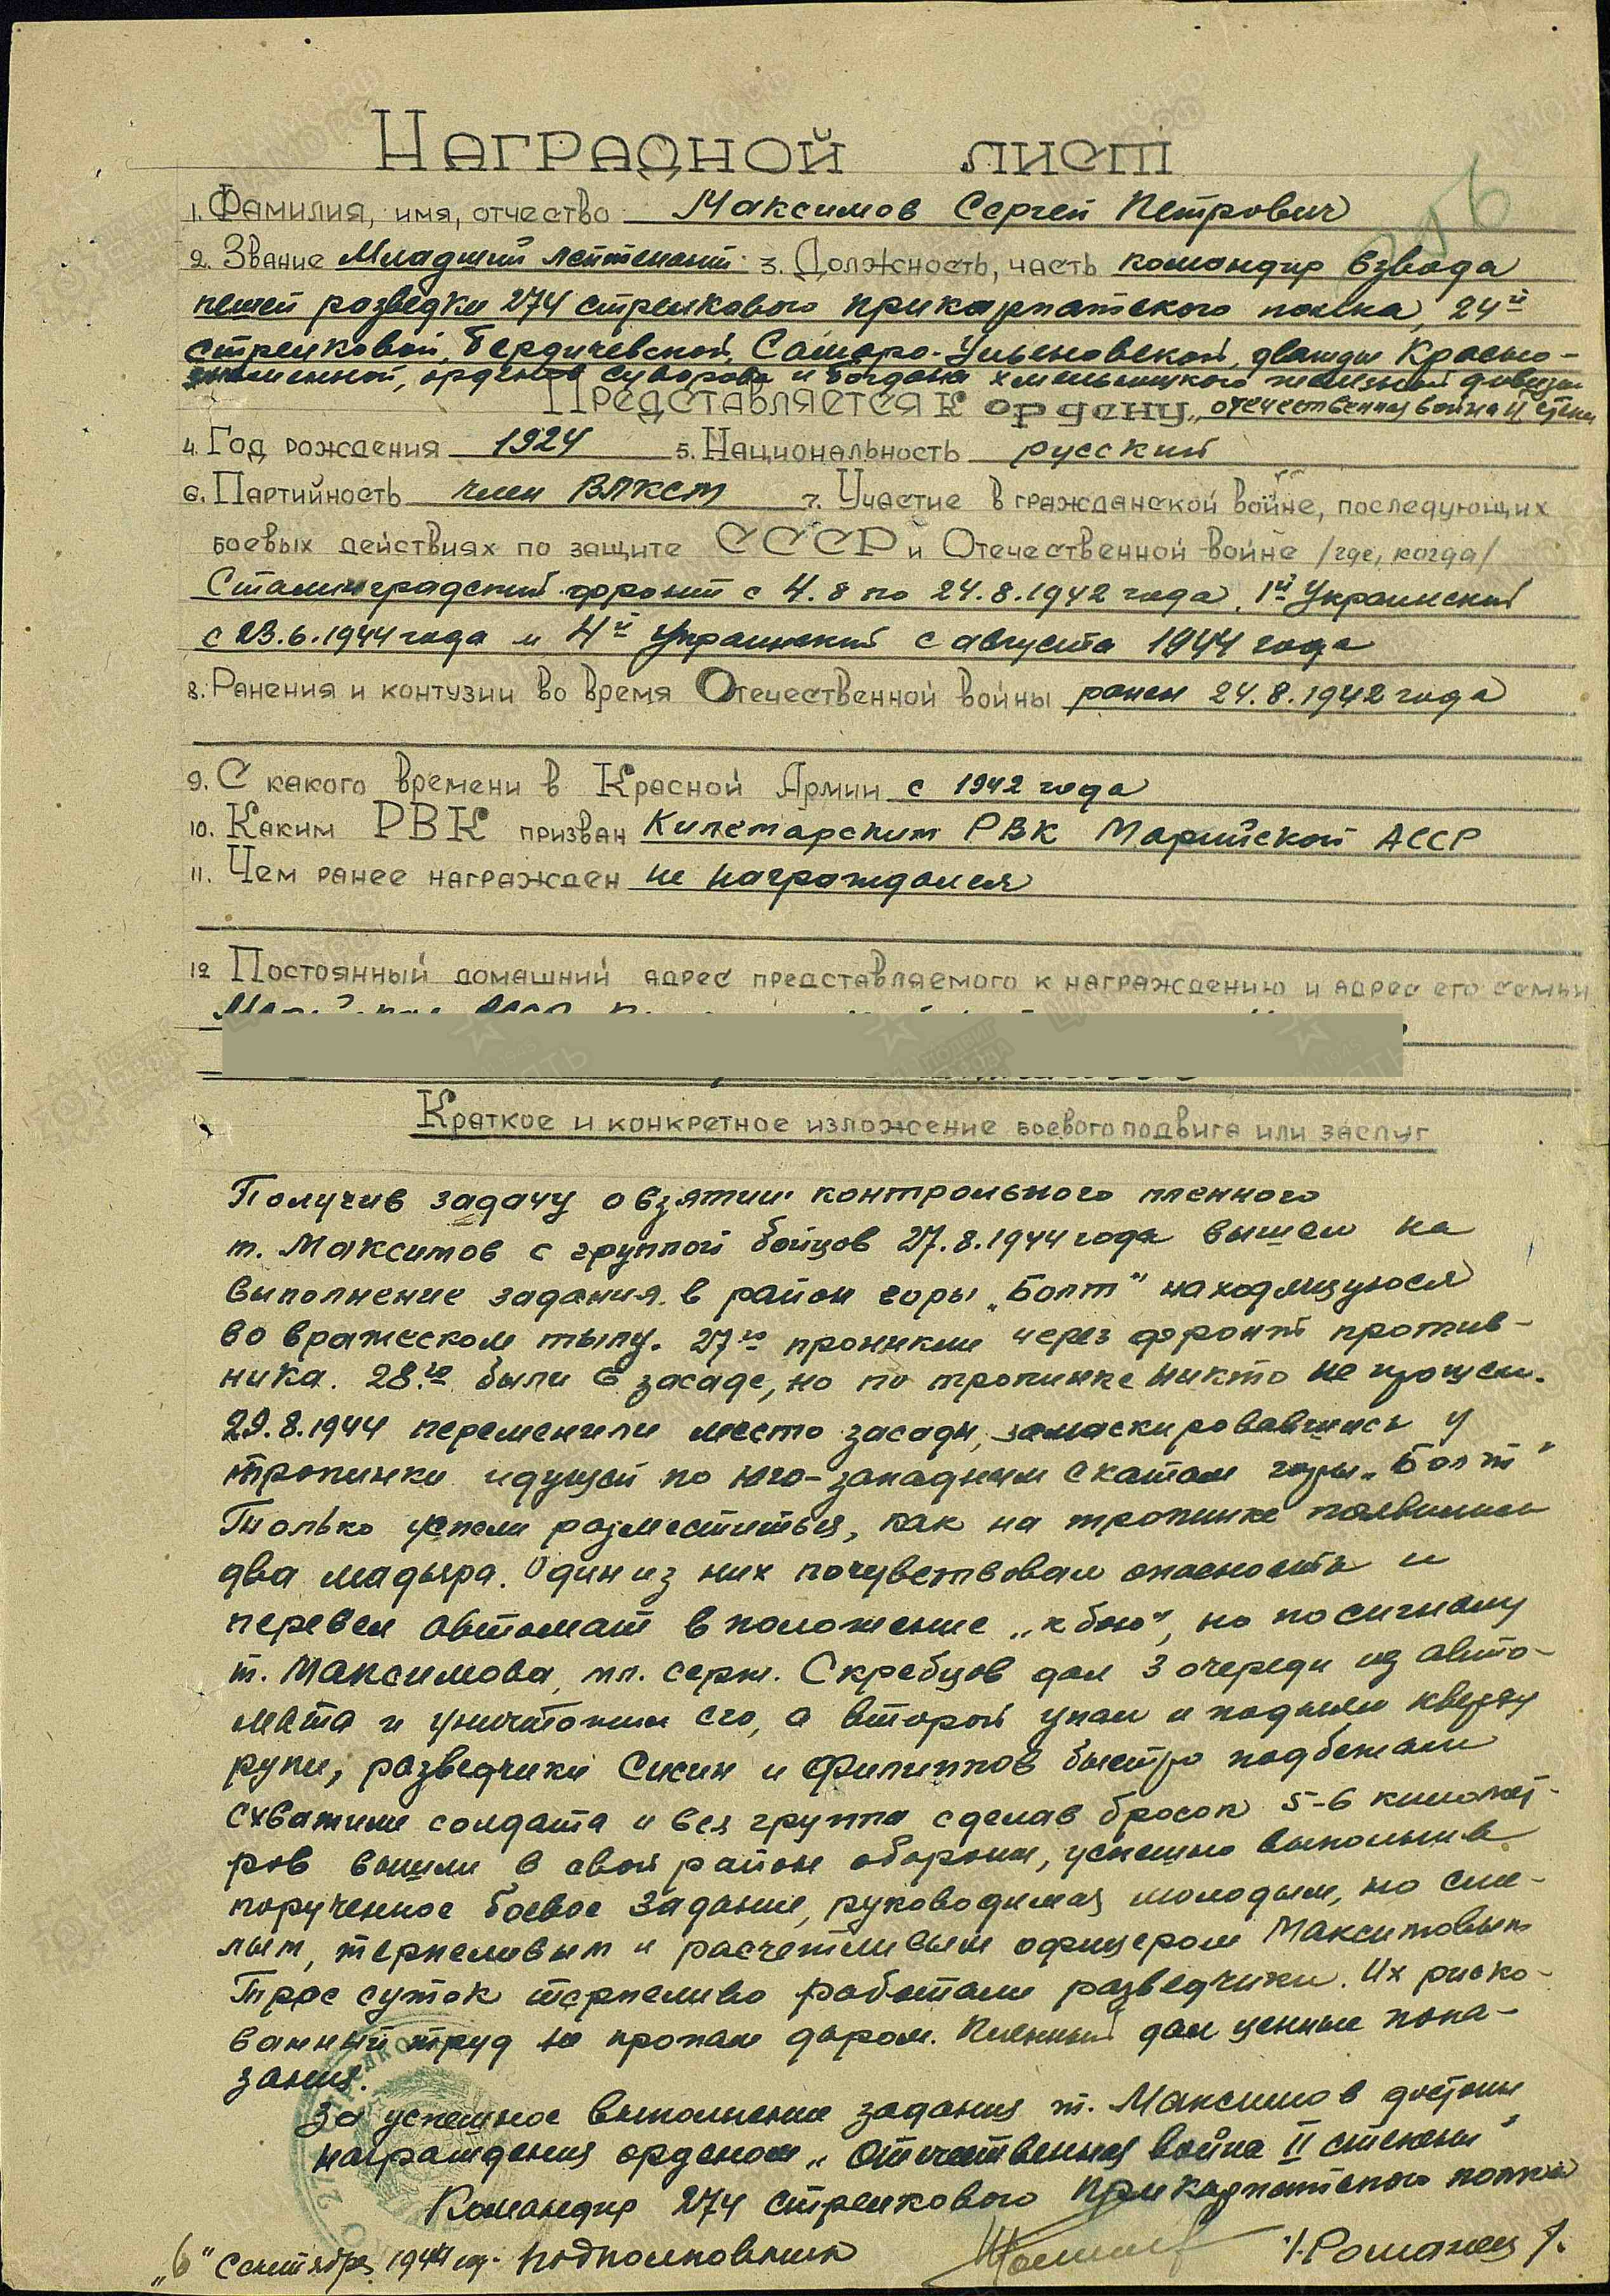 Наградной лист
1. Фамилия, имя, отчество Максимов Сергей Петрович
2. Звание Младший лейтенант 3. Должность, часть командир взвода
пешей разведки 274 стрелкового прикарпатского полка, 24й
стрелковой, Бердичевской, Самаро-Ульяновской, дважды Красно-
знаменной, орденов Суворова и Богдана Хмельницкого железной дивизии
Представляется к ордену „отечественная война II степени
4. Год рождения 1924 5. Национальность русский
6. Партийность член ВЛКСМ 7. Участие в гражданской войне, последующих
боевых действиях по защите СССР и Отечественной войне /где, когда/
Сталинградский фронт с 4.8 по 24.8.1942 года, 1й Украинский
с 23.6.1944 года и 4й Украинский с августа 1944 года
8. Ранения и контузии во время Отечественной войны ранен 24.8.1942 года
9. С какого времени в Красной Армии с 1942 года
10. Каким РВК призван Килемарским РВК Марийской АССР
11. Чем ранее награжден не награждался
12 Постоянный домашний адрес представляемого к награждению и адрес его семьи
Краткое и конкретное изложение боевого подвига или заслуг
Получив задачу о взятии контрольного пленного
т. Максимов с группой бойцов 27.8.1944 года вышел на
выполнение задания в район горы „Болт" находящуюся
во вражеском тылу. 27го проникли через фронт против-
ника. 28го были в засаде, но по тропинке никто не прошел.
29.8.1944 переменили место засады, замаскировавшись у
тропинки идущей по юго-западным скатам горы „Болт"
Только успели разместиться, как на тропинке появились
два мадьяра. Один из них почувствовал опасность и
перевел автомат в положение „к бою", но по сигналу
т. Максимова, мл. серж. Скребцов дал 3 очереди из авто-
мата и уничтожил его, а второй упал и поднял кверху
руки, разведчики Сисин и Филиппов быстро подбежали
схватили солдата и вся группа сделав бросок 5-6 километ-
ров вышли в свой район обороны, успешно выполнив
порученное боевое задание, руководимая молодым, но сме-
лым, терпеливым и расчетливым офицером Максимовым
Трое суток терпеливо работали разведчики. Их риско-
ванный труд не пропал даром. Пленный дал ценные пока-
зания.
За успешное выполнение задания т. Максимов достоин
награждения орденом „Отечественная война II степени"
Командир 274 стрелкового Прикарпатского полка
„6" Сентября 1944 г. подполковник /Романец/.